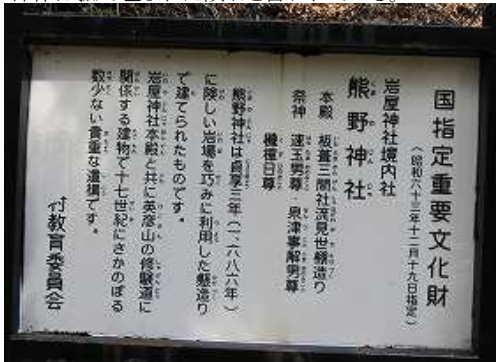 国指定重要文化財
(昭和六十三年十二月十九日指定)
岩屋神社境内社
熊野神社
本殿 板葺三間社流見世棚造り
祭神 速玉男尊・泉津事解男尊
櫲樟日尊
熊野神社は貞享三年(一、六八六年)
に険しい岩場を巧みに利用した懸造り
で建てられたものです。
岩屋神社本殿と共に英彦山の修験道に
関係する建物で十七世紀にさかのぼる
数少ない貴重な遺構です。
村教育委員会